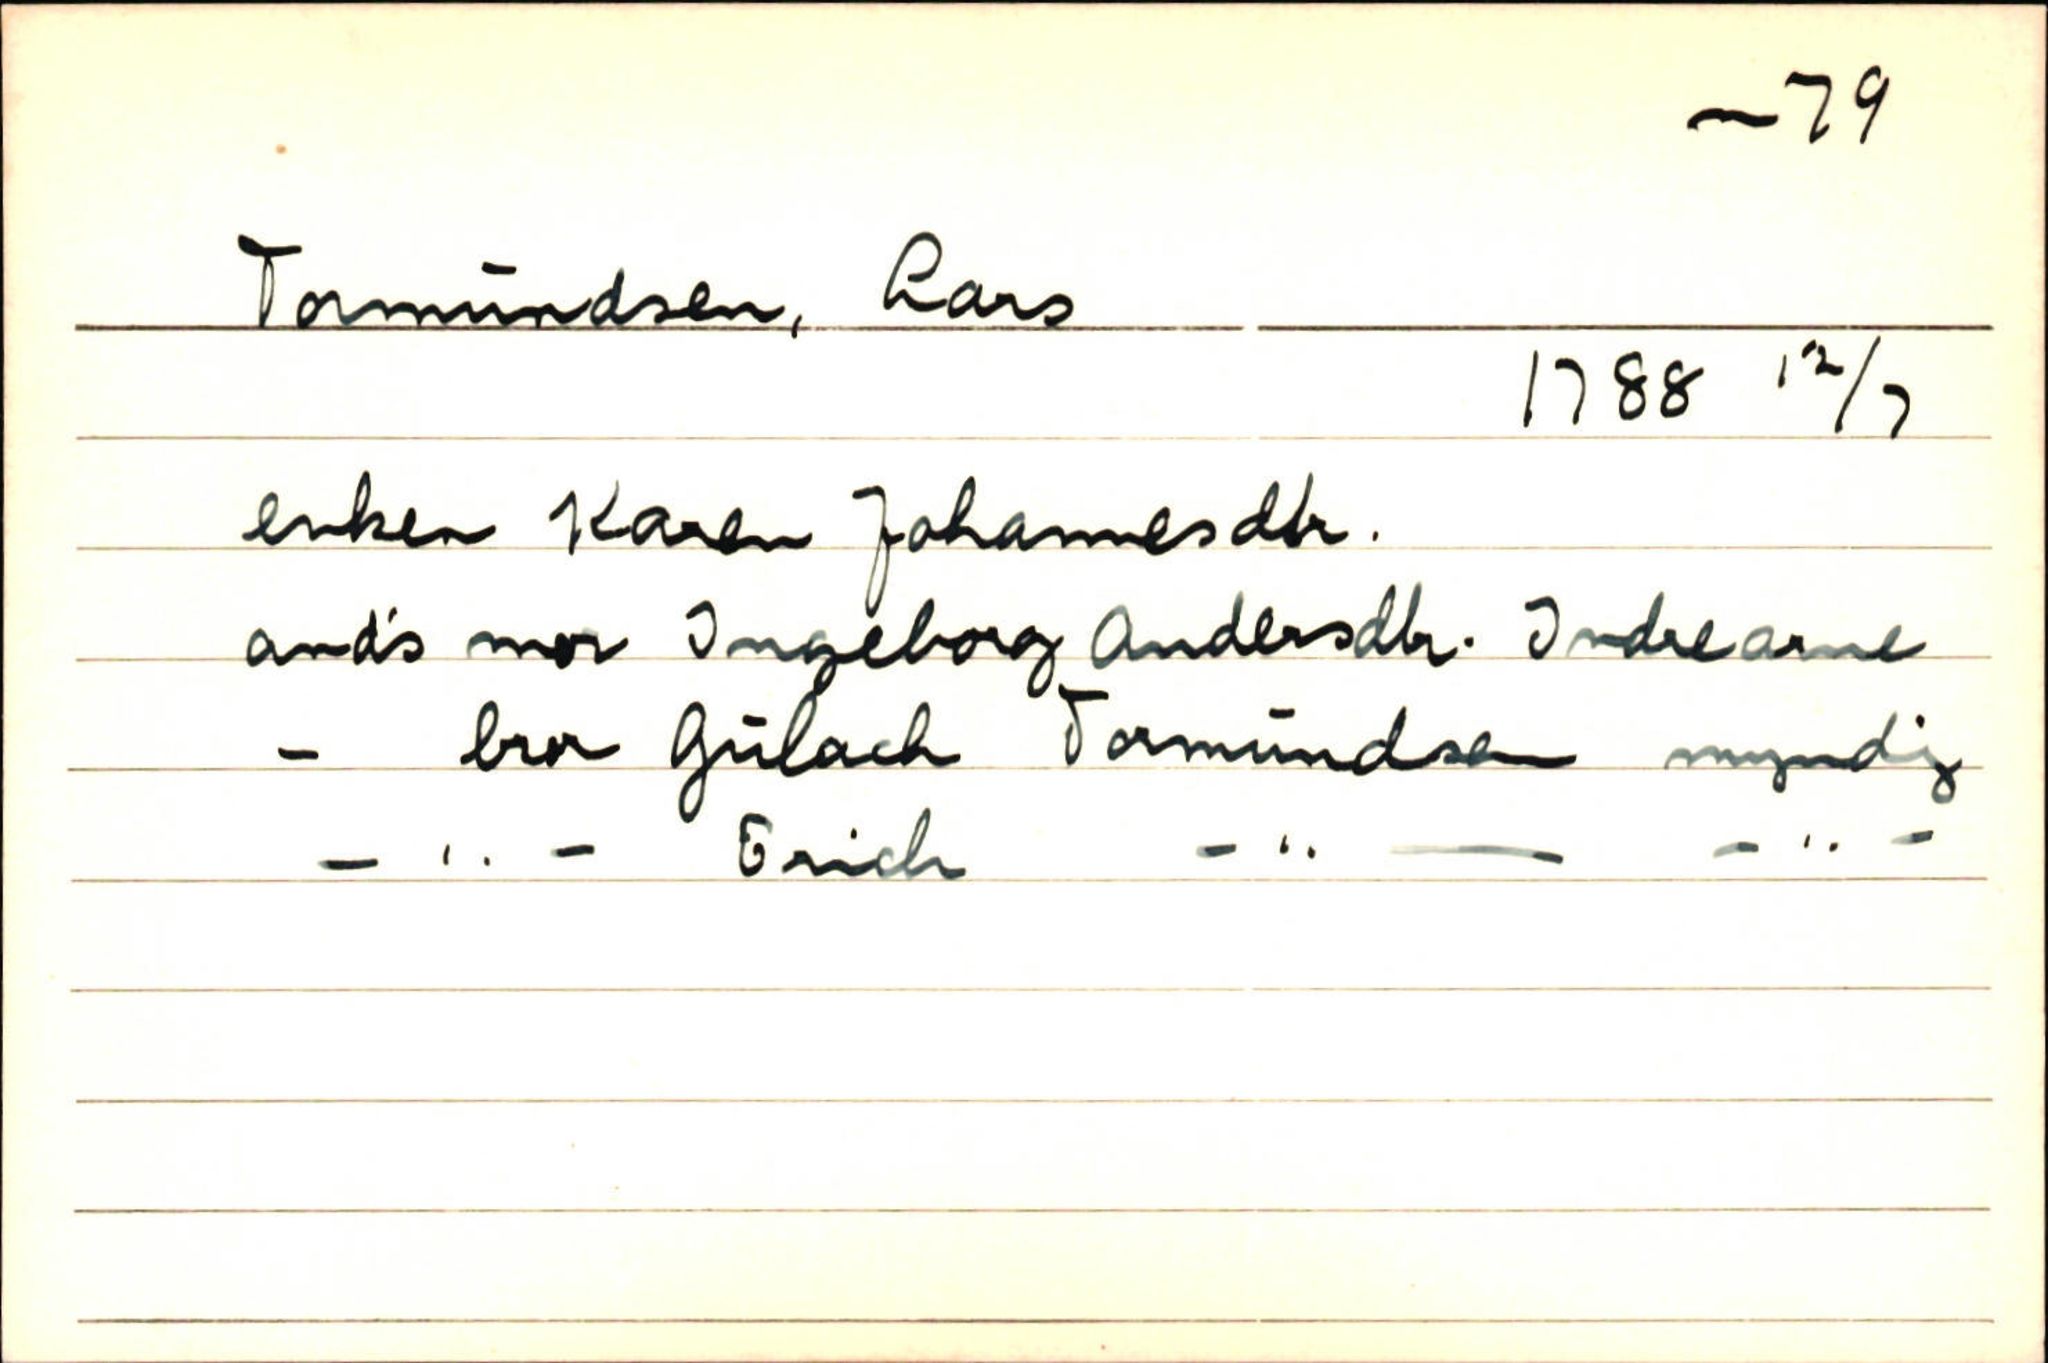 ~79
Tormūndsen, Lars
1788 12/7
enken Karen Johannesdtr.
and's mor Ingeborg Andersdtr. Indrearne
- bror Gūlach Tormūndsen myndig
- " - Erich - " - - " -